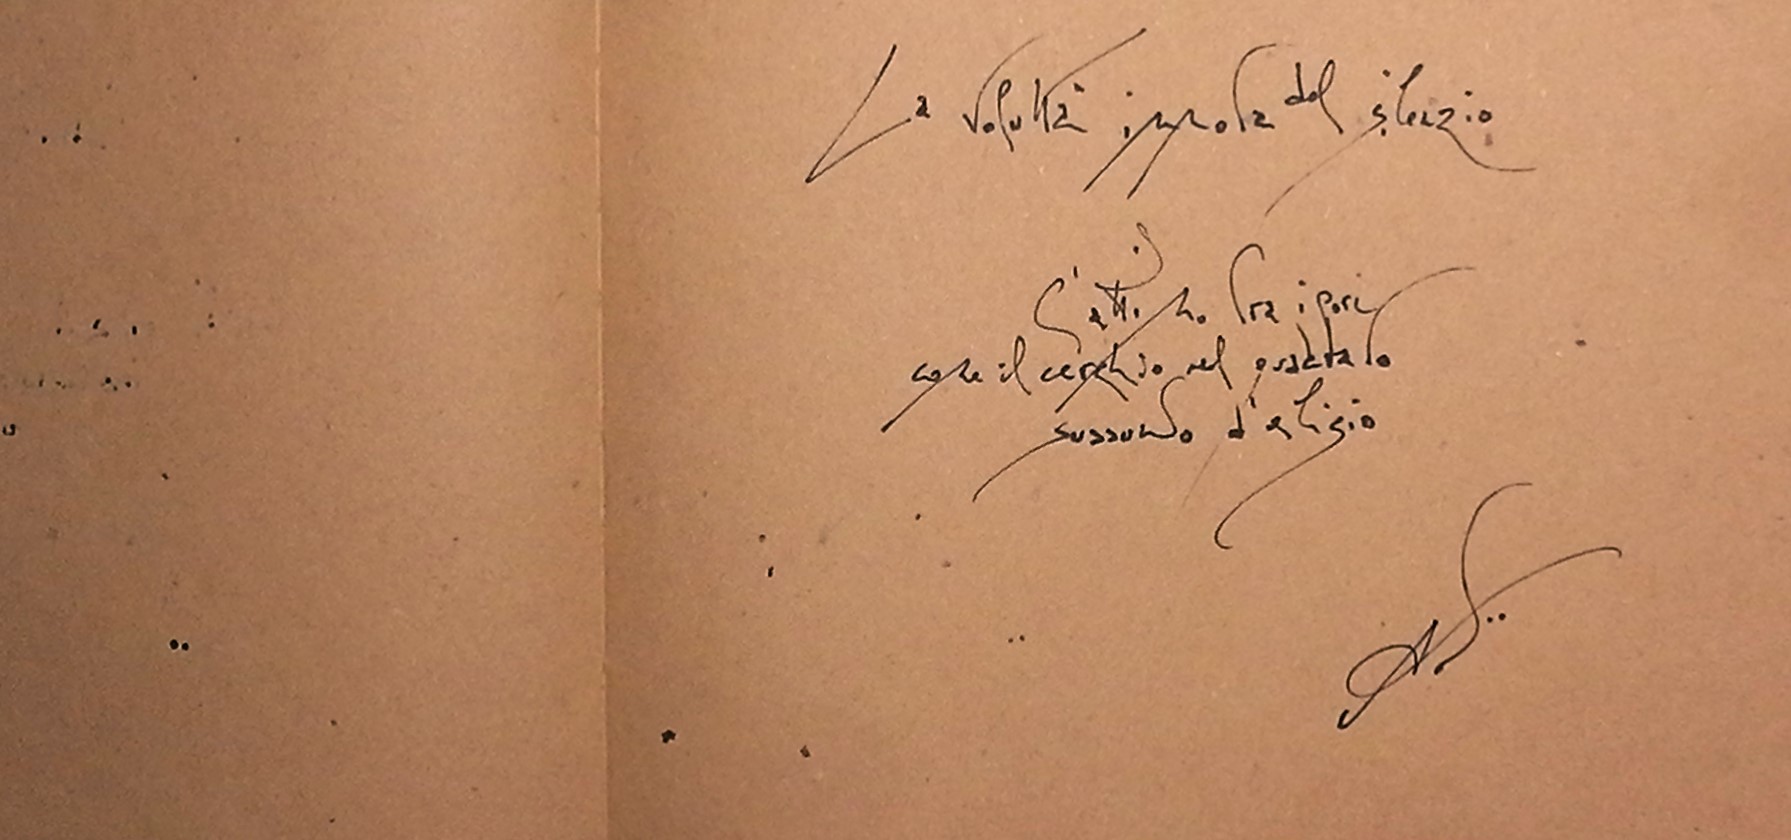 La voluttà ignota del silenzio
L'attimo fra i pori
come il cerchio nel quadrato
sussurro d'eligio